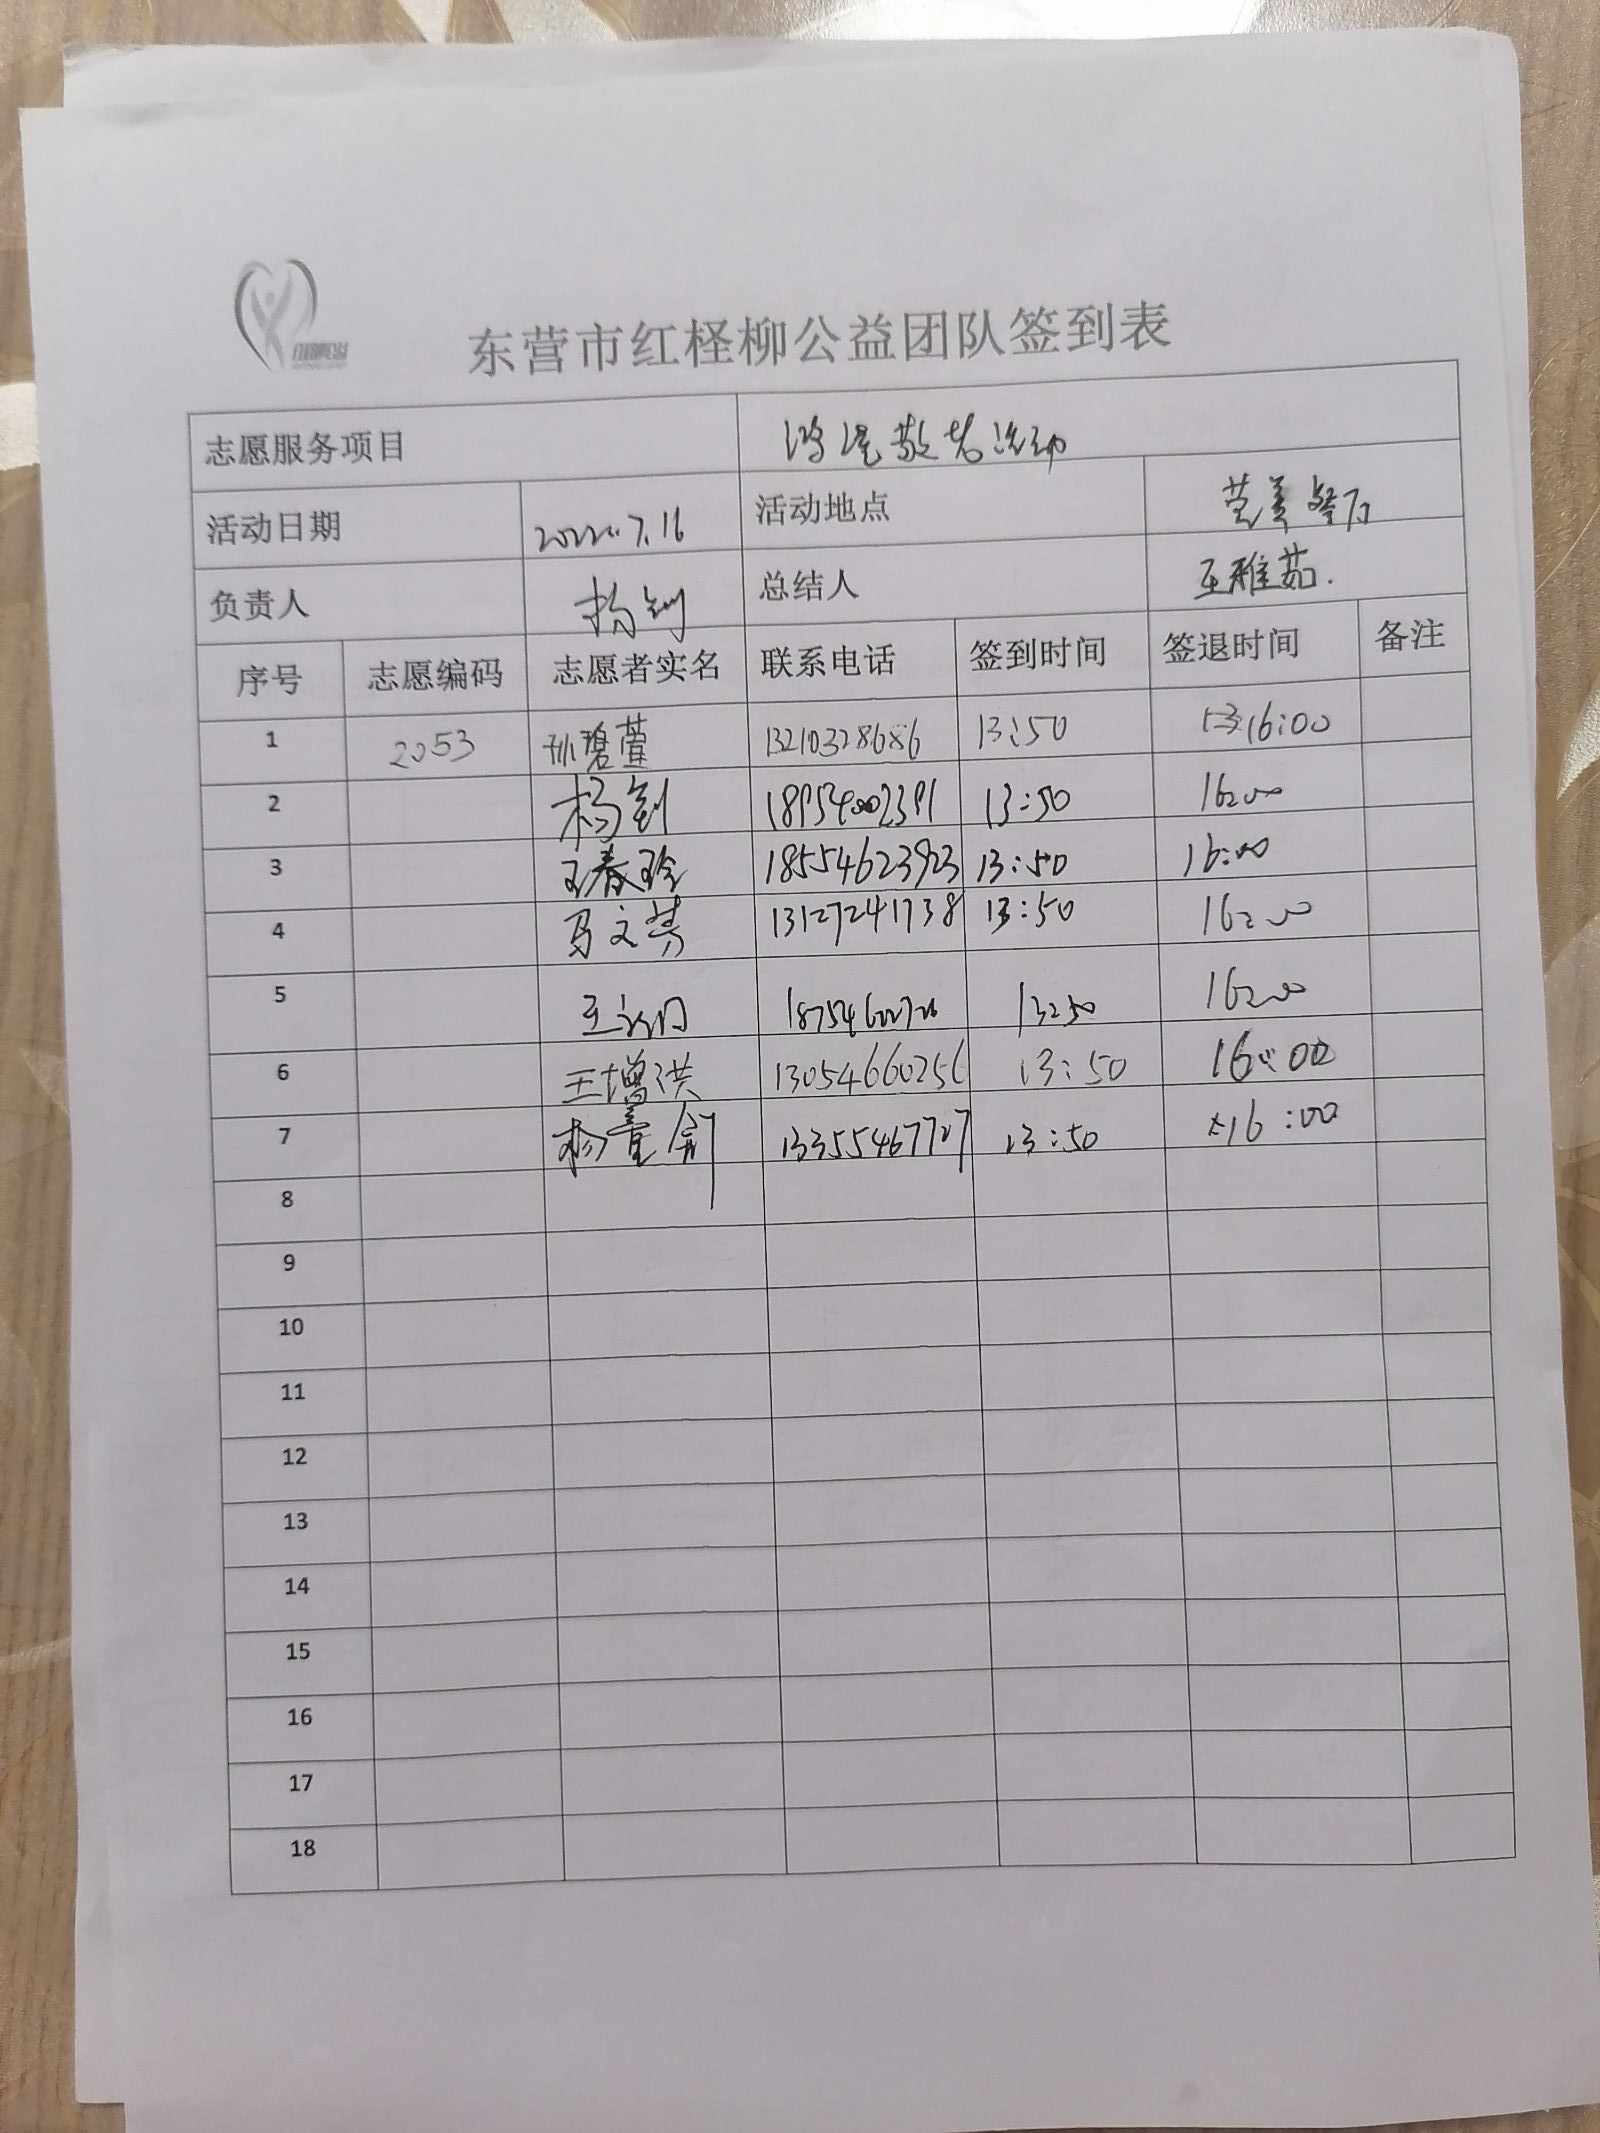 东营市红柽柳公益团队签到表
志愿服务项目 敬老活动
活动日期 2022.7.16 活动地点
负责人 杨钊 总结人 王雅茹.
序号 志愿编码 志愿者实名 联系电话 签到时间 签退时间 备注
1 2053 孙碧萱 13210328686 13:50 16:00
2 杨钊 13:50 16:00
3 王春玲 18554623923 13:50 16:00
4 马文芳 13127241738 13:50 16:00
5 13:50 16:00
6 王增洪 13054660256 13:50 16:00
7 13355467727 13:50 16:00
8
9
10
11
12
13
14
15
16
17
18